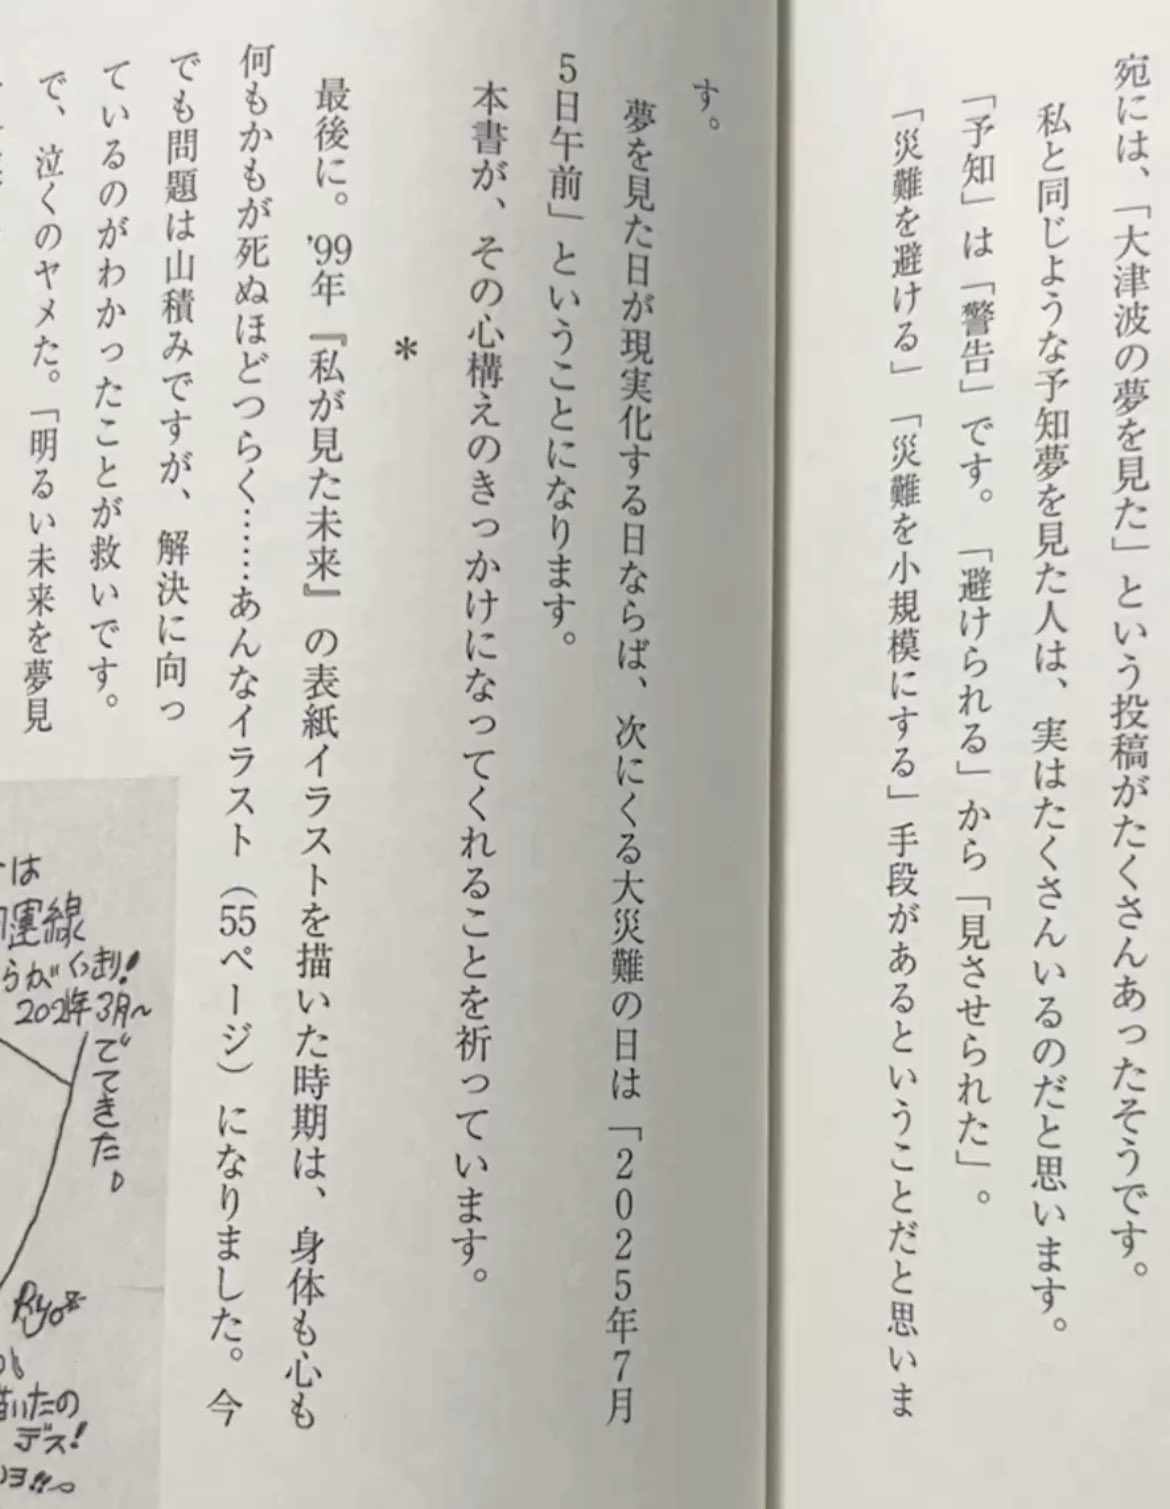 宛には、「大津波の夢を見た」という投稿がたくさんあったそうです。
私と同じような予知夢を見た人は、実はたくさんいるのだと思います。
「予知」は「警告」です。「避けられる」から「見させられた」。
「災難を避ける」「災難を小規模にする」手段があるということだと思いま
す。
夢を見た日が現実化する日ならば、次にくる大災難の日は「2025年7月
5日午前」ということになります。
本書が、その心構えのきっかけになってくれることを祈っています。
*
最後に。'99年『私が見た未来』の表紙イラストを描いた時期は、身体も心も
何もかもが死ぬほどつらく……あんなイラスト（55ページ）になりました。今
でも問題は山積みですが、解決に向っ
ているのがわかったことが救いです。
で、泣くのヤメた。「明るい未来を夢見
は
運線
らがくっきり!
2021年3月~
でてきた。
Ryo
描いたの
デス!
ヨ!!